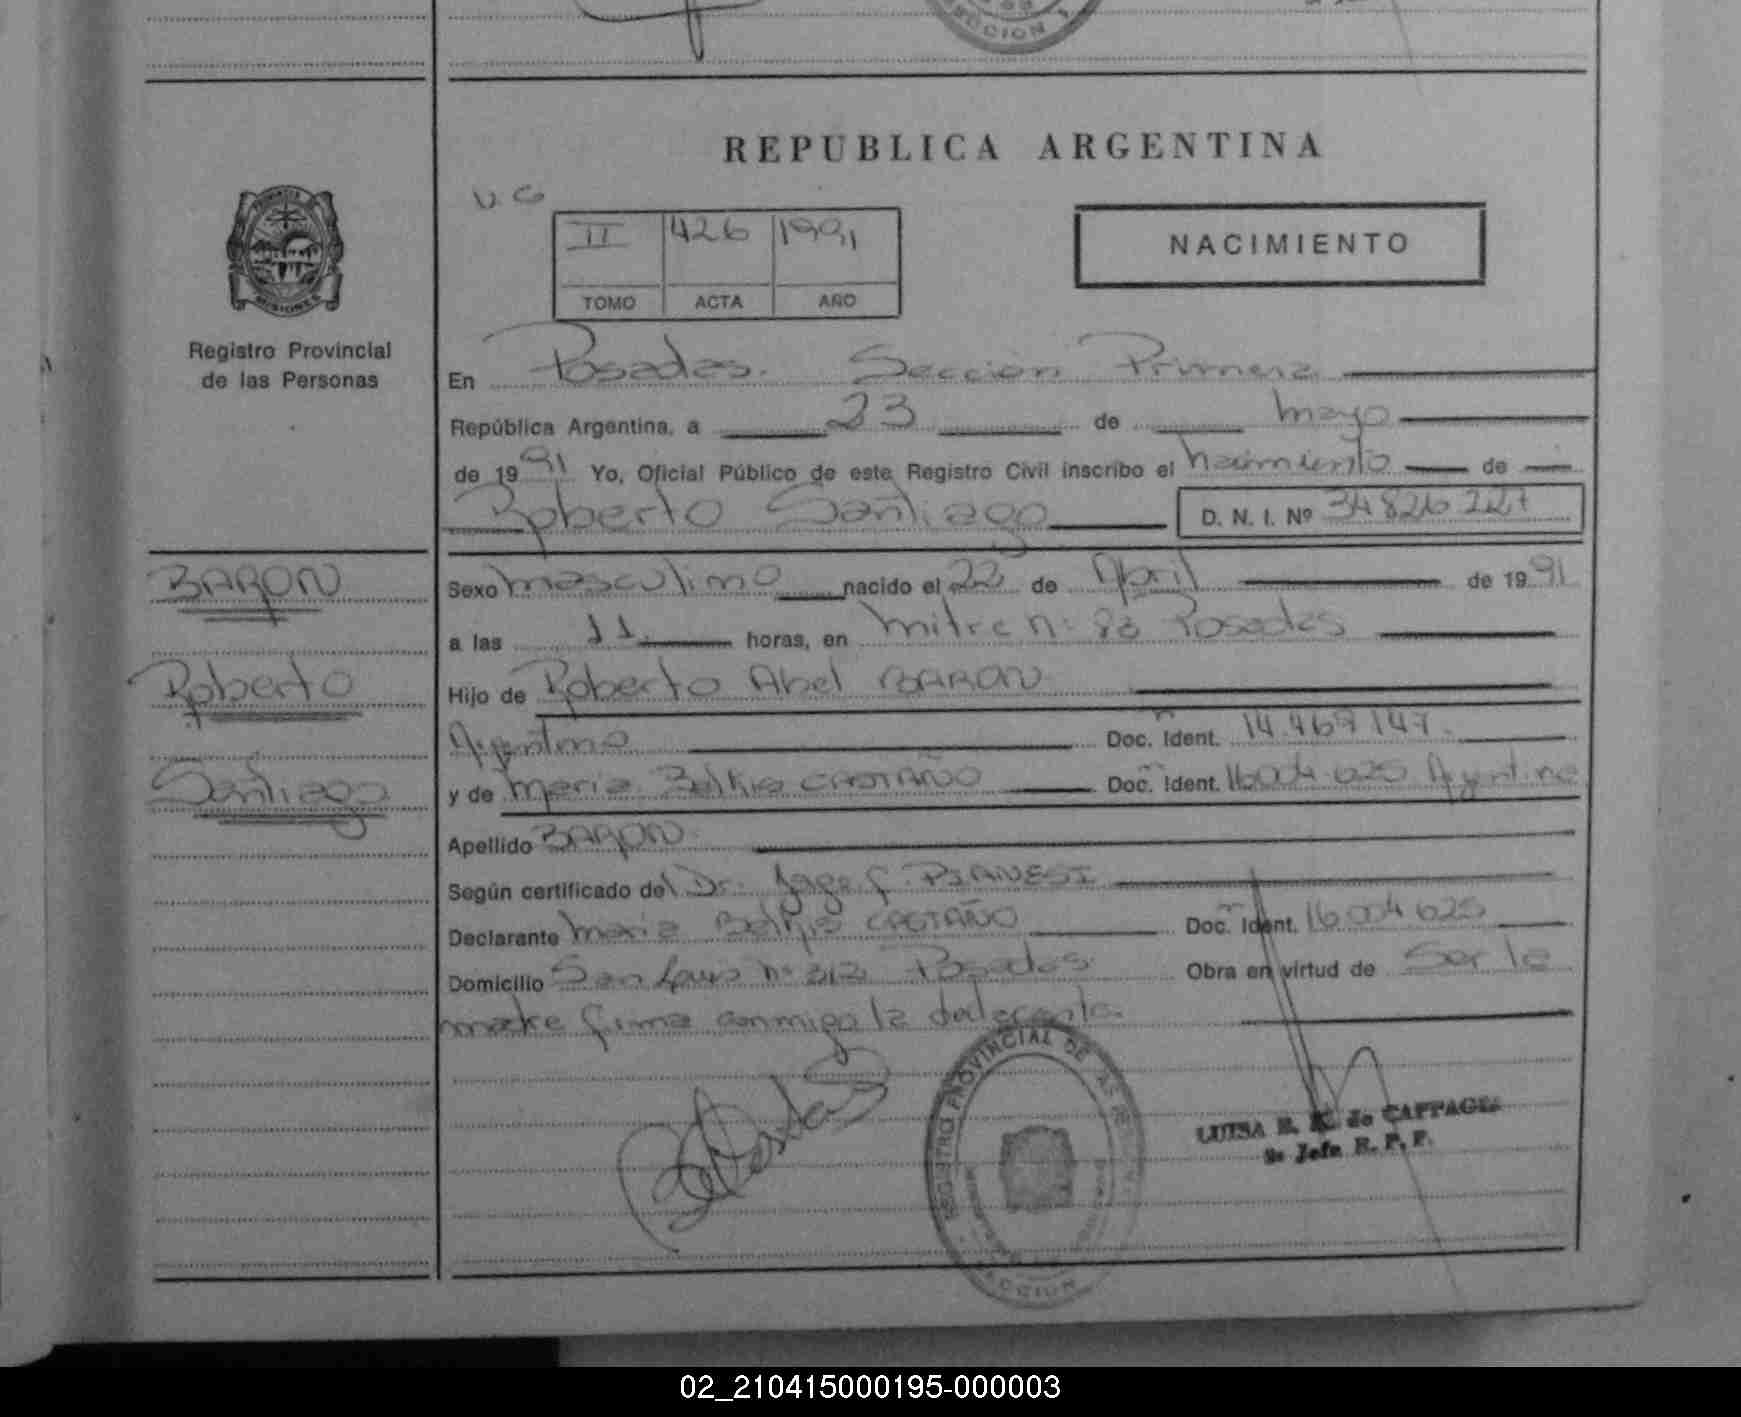 SECCION 1
REPUBLICA ARGENTINA
V.G
II 426 1991
TOMO ACTA AÑO
NACIMIENTO
PROVINCIA DE
MISIONES
Registro Provincial
de las Personas
En Posadas. Sección Primera
República Argentina, a 23 de mayo
de 1991 Yo, Oficial Público de este Registro Civil inscribo el nacimiento de
Roberto Santiago D. N. I. Nº 34826227
BARON
Roberto
Santiago
Sexo masculino nacido el 22 de Abril de 1991
a las 11. horas, en Mitre nº 83 Posadas
Hijo de Roberto Abel BARON
Argentino Doc. Ident. 14.469.147.
y de Maria Belkis CASTAÑO Doc. Ident. 16.004.625 Argentina
Apellido BARON
Según certificado del Dr. PIANESI
Declarante Maria Belkis CASTAÑO Doc. Ident. 16.004.625
Domicilio San Luis nº Posadas. Obra en virtud de Ser la
madre firma conmigo la declarante.
REGISTRO PROVINCIAL DE LAS
SECCION
LUISA E. K. de CAFFAGGI
2º Jefe R. P. P.
02_210415000195-000003